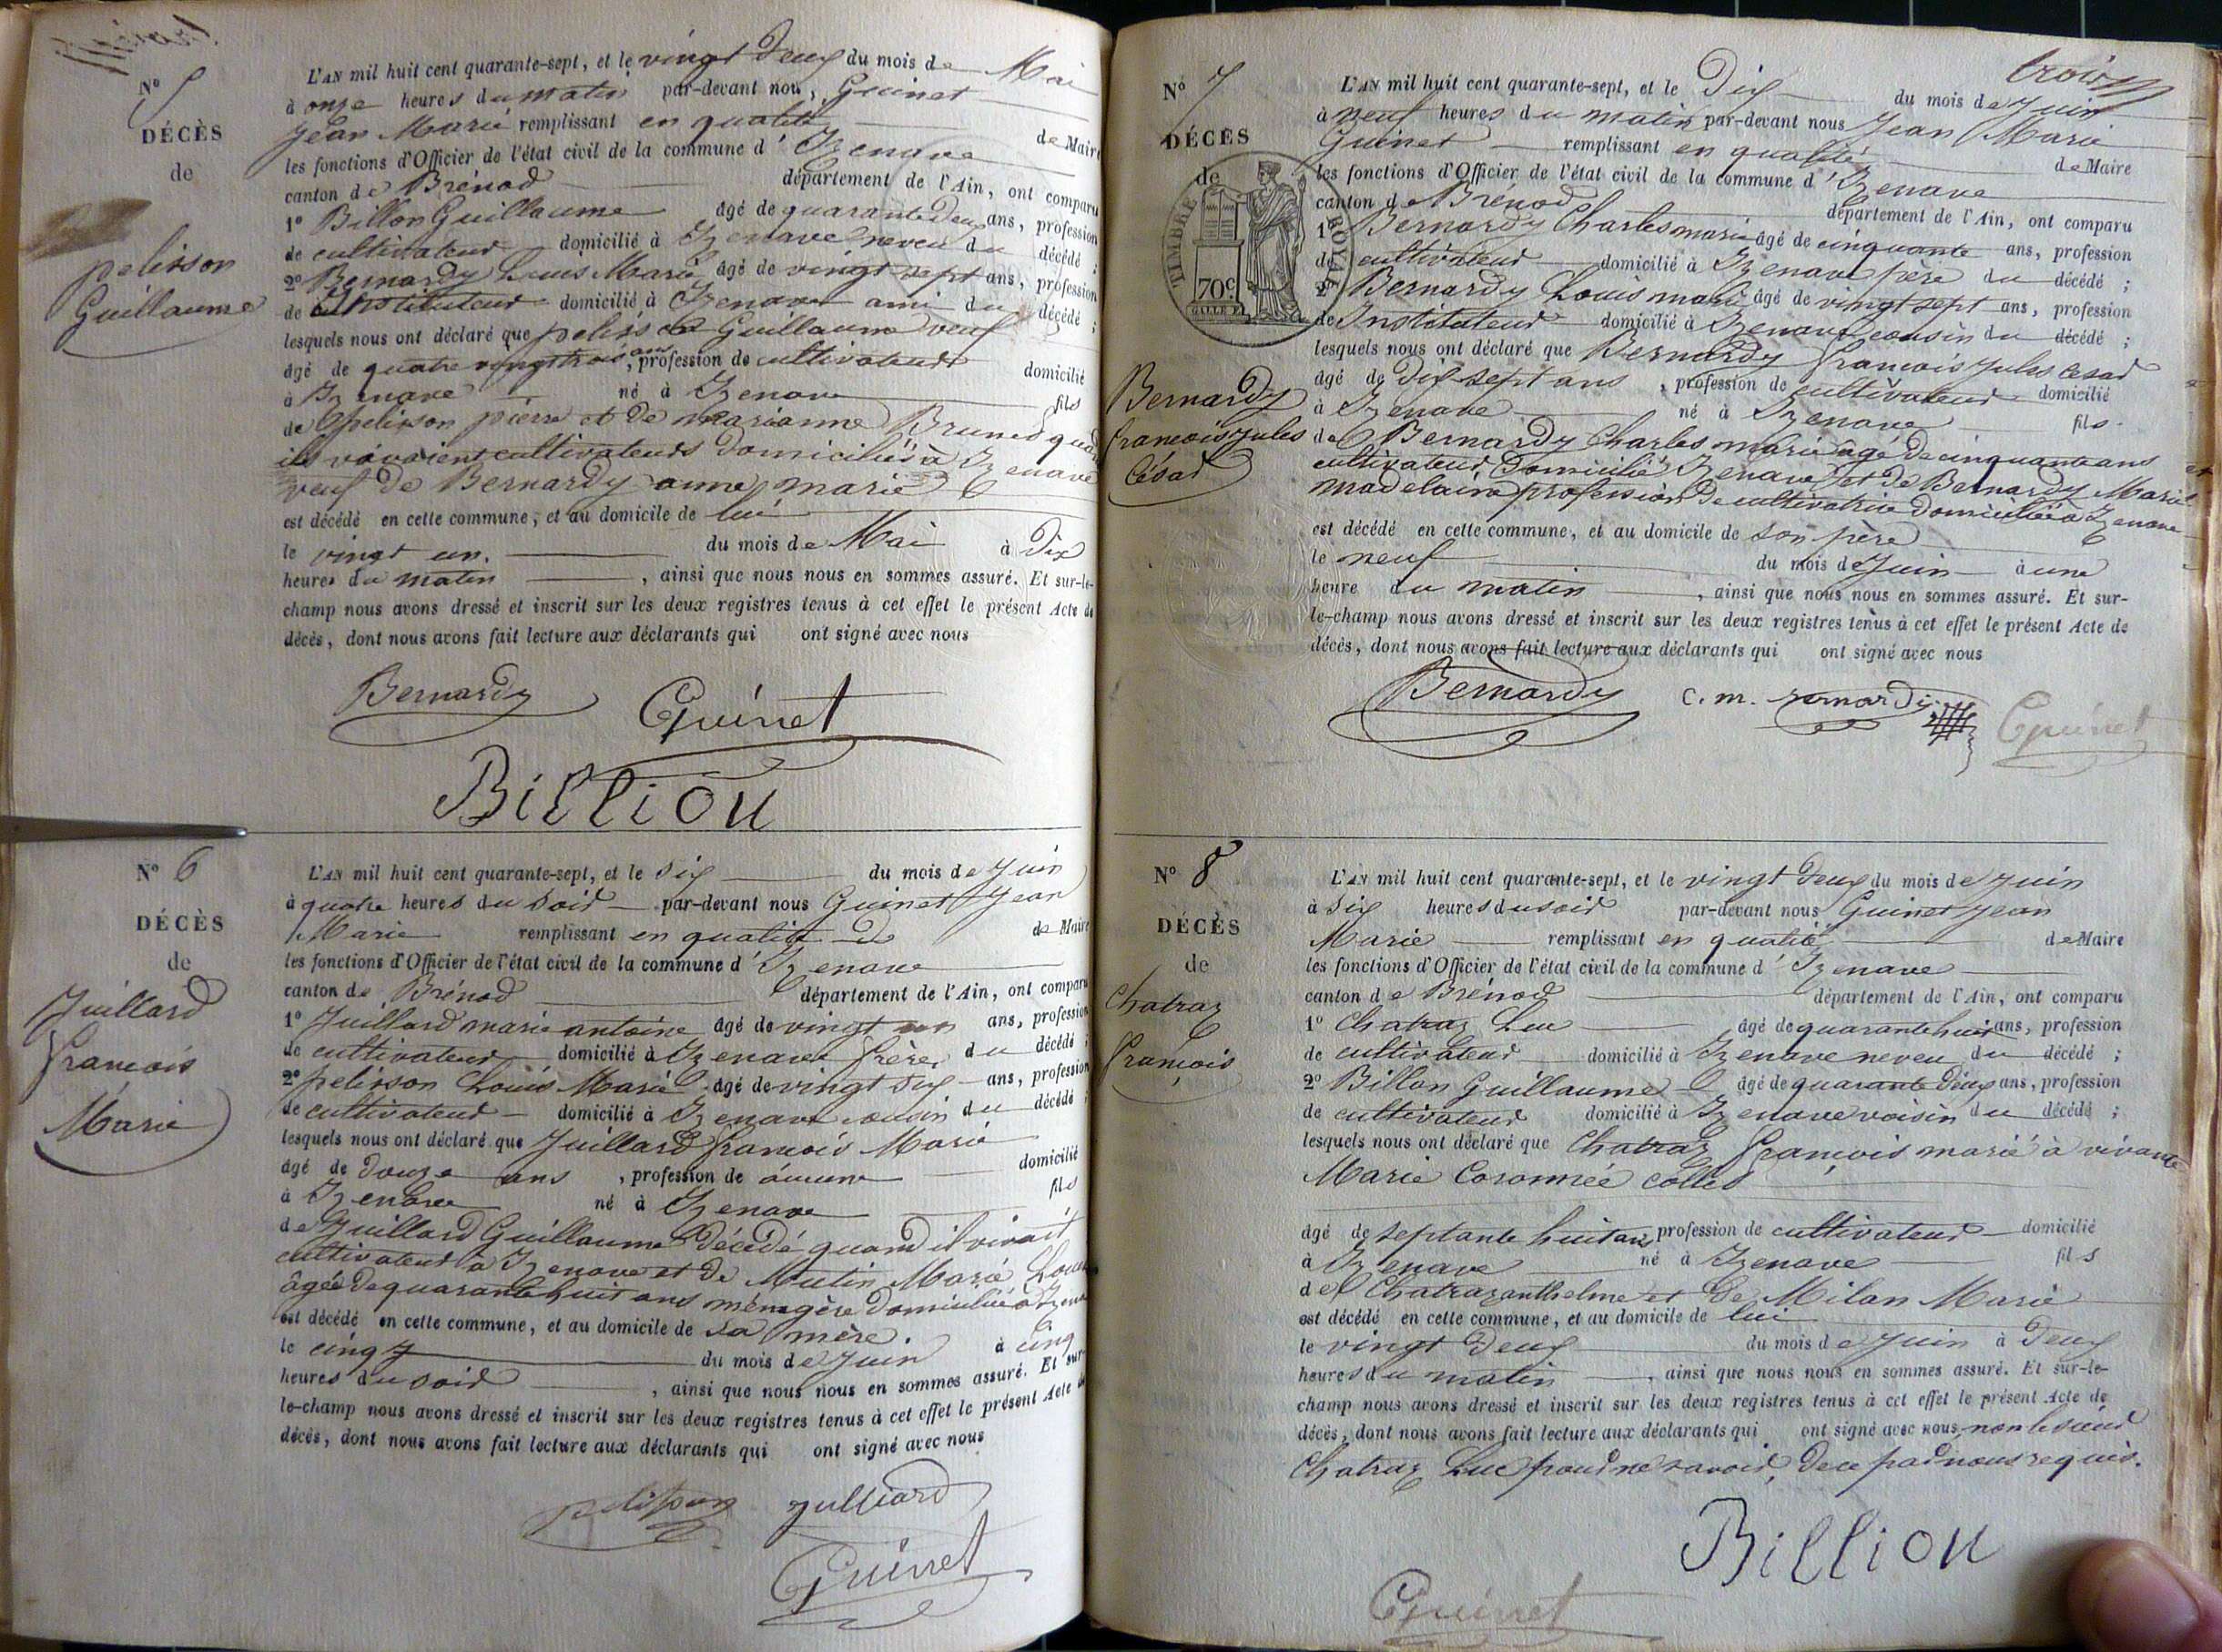 Nº 5
DÉCÈS
de
pelisson
Guillaume
L'AN mil huit cent quarante-sept, et le vingt deux du mois de Mai
à onze heures du matin par-devant nou, Guinet
Jean Marie remplissant en qualité de Maire
les fonctions d'Officier de l'état civil de la commune d'Izenave
canton de Brénod département de l'Ain, ont comparu
1º Billon Guillaume âgé de quarante deux ans, profession
de cultivateur domicilié à Izenave neveu du décédé ;
2º Bernardy Louis Marie âgé de vingt sept ans, profession
de Instituteur domicilié à Izenave ami du décédé ;
lesquels nous ont déclaré que pelisson Guillaume veuf
âgé de quatre vingt trois ans, profession de cultivateur domicilié
à Izenave né à Izenave fils
de pelisson pierre et de marianne Brunet quand
ils vivaient cultivateurs domiciliés à Izenave
veuf de Bernardy anne marie
est décédé en cette commune, et au domicile de lui
le vingt un. du mois de Mai à Dix
heures du matin , ainsi que nous nous en sommes assuré. Et sur-le-
champ nous avons dressé et inscrit sur les deux registres tenus à cet effet le présent Acte de
décès, dont nous avons fait lecture aux déclarants qui ont signé avec nous
Bernardy Guinet
Billion
Nº 6
DÉCÈS
de
Juillard
francois
Marie
L'AN mil huit cent quarante-sept, et le six du mois de Juin
à quatre heures du soir par-devant nous Guinet Jean
Marie remplissant en qualité de de Maire
les fonctions d'Officier de l'état civil de la commune d'Izenave
canton de Brénod département de l'Ain, ont comparu
1º Juillard marie antoine âgé de vingt un ans, profession
de cultivateur domicilié à Izenave frère du décédé ;
2º pelisson Louis Marie âgé de vingt six ans, profession
de cultivateur domicilié à Izenave cousin du décédé ;
lesquels nous ont déclaré que Juillard francois Marie
âgé de douze ans , profession de aucune domicilié
à Izenave né à Izenave fils
de Juillard Guillaume décédé quand il vivait
cultivateur à Izenave et de Mutin Marie Louise
âgée de quarante huit ans ménagère domiciliée à Izenave
est décédé en cette commune, et au domicile de sa mère.
le cinq du mois de Juin à cinq
heures du soir , ainsi que nous nous en sommes assuré. Et sur-
le-champ nous avons dressé et inscrit sur les deux registres tenus à cet effet le présent Acte de
décès, dont nous avons fait lecture aux déclarants qui ont signé avec nous
pelisson Julliard
Guinet
trois
Nº 7
DÉCÈS
de
TIMBRE ROYAL
70c
Bernardy
francois Jules
César
L'AN mil huit cent quarante-sept, et le Dix du mois de Juin
à neuf heures du matin par-devant nous Jean Marie
Guinet remplissant en qualité de Maire
les fonctions d'Officier de l'état civil de la commune d'Izenave
canton de Brénod département de l'Ain, ont comparu
1º Bernardy Charles marie âgé de cinquante ans, profession
de cultivateur domicilié à Izenave père du décédé ;
2º Bernardy Louis marie âgé de vingt sept ans, profession
de Instituteur domicilié à Izenave cousin du décédé ;
lesquels nous ont déclaré que Bernardy francois Jules César
âgé de Dix sept ans , profession de cultivateur domicilié
à Izenave né à Izenave fils
de Bernardy Charles marie âgé de cinquante ans
cultivateur Domicilié Izenave et de Bernardy Marie
madelaine profession de cultivatrice domiciliée à Izenave
est décédé en cette commune, et au domicile de son père
le neuf du mois de Juin à une
heure du matin , ainsi que nous nous en sommes assuré. Et sur-
le-champ nous avons dressé et inscrit sur les deux registres tenus à cet effet le présent Acte de
décès, dont nous avons fait lecture aux déclarants qui ont signé avec nous
Bernardy C. m. Bernardy Guinet
Nº 8
DÉCÈS
de
Chatraz
François
L'AN mil huit cent quarante-sept, et le vingt deux du mois de Juin
à six heures du soir par-devant nous Guinet Jean
Marie remplissant en qualité de Maire
les fonctions d'Officier de l'état civil de la commune d'Izenave
canton de Brénod département de l'Ain, ont comparu
1º Chatraz Luc âgé de quarante huit ans, profession
de cultivateur domicilié à Izenave neveu du décédé ;
2º Billon Guillaume âgé de quarante deux ans, profession
de cultivateur domicilié à Izenave voisin du décédé ;
lesquels nous ont déclaré que Chatraz François marié à vivante
Marie Coronnée Collet
âgé de septante huit ans profession de cultivateur domicilié
à Izenave né à Izenave fils
de Chatraz anthelme et de Milan Marie
est décédé en cette commune, et au domicile de lui
le vingt deux du mois de Juin à Deux
heures du matin , ainsi que nous nous en sommes assuré. Et sur-le-
champ nous avons dressé et inscrit sur les deux registres tenus à cet effet le présent Acte de
décès, dont nous avons fait lecture aux déclarants qui ont signé avec nous, non le sieur
Chatraz Luc pour ne savoir, de ce par nous requis.
Billion
Guinet